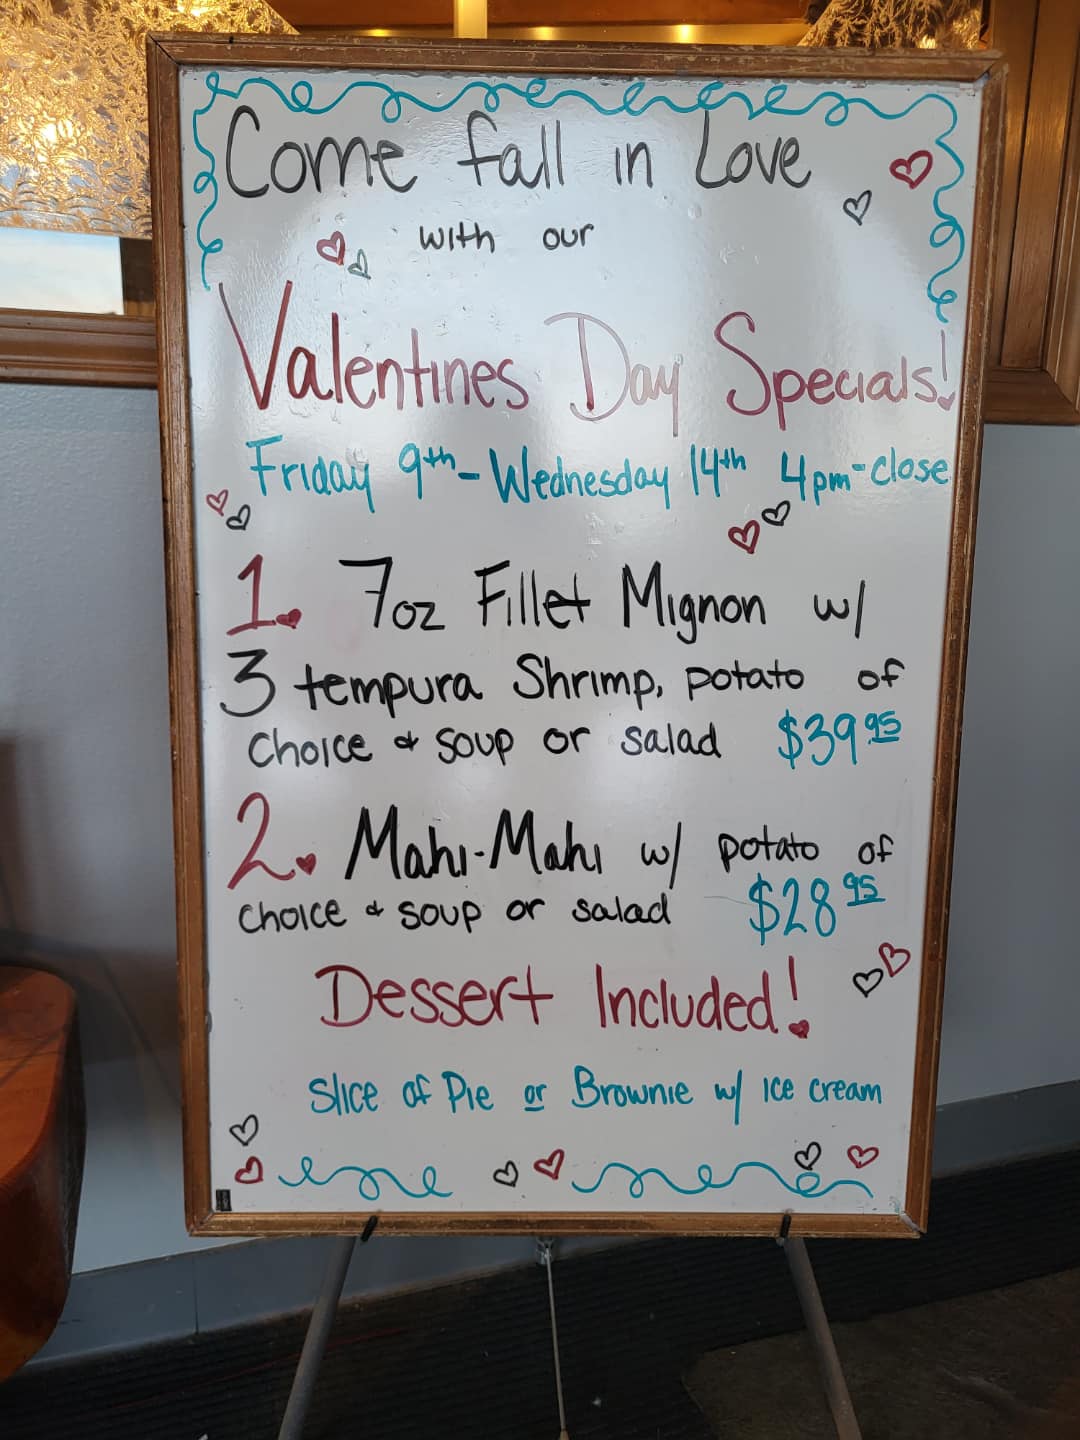 Come fall in Love
with our
Valentines Day Specials!
Friday 9th - Wednesday 14th 4pm-close
1. 7oz Fillet Mignon w/
3 tempura Shrimp, potato of
choice & soup or salad $39.95
2. Mahi-Mahi w/ potato of
choice & soup or salad $28 95
Dessert Included!
Slice of Pie or Brownie w/ ice cream